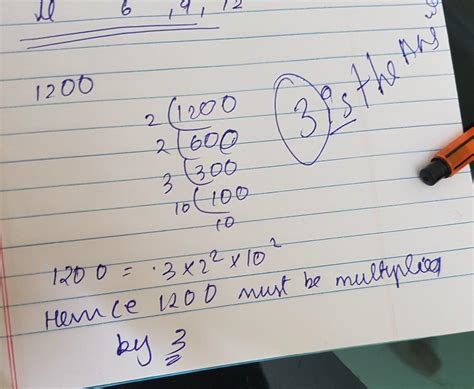 6, 9, 12
1200
2 1200
2 600
3 300
10 100
10
3 is the Ans
1200 = 3 × 2² × 10²
Hence 1200 must be multiplied
by 3